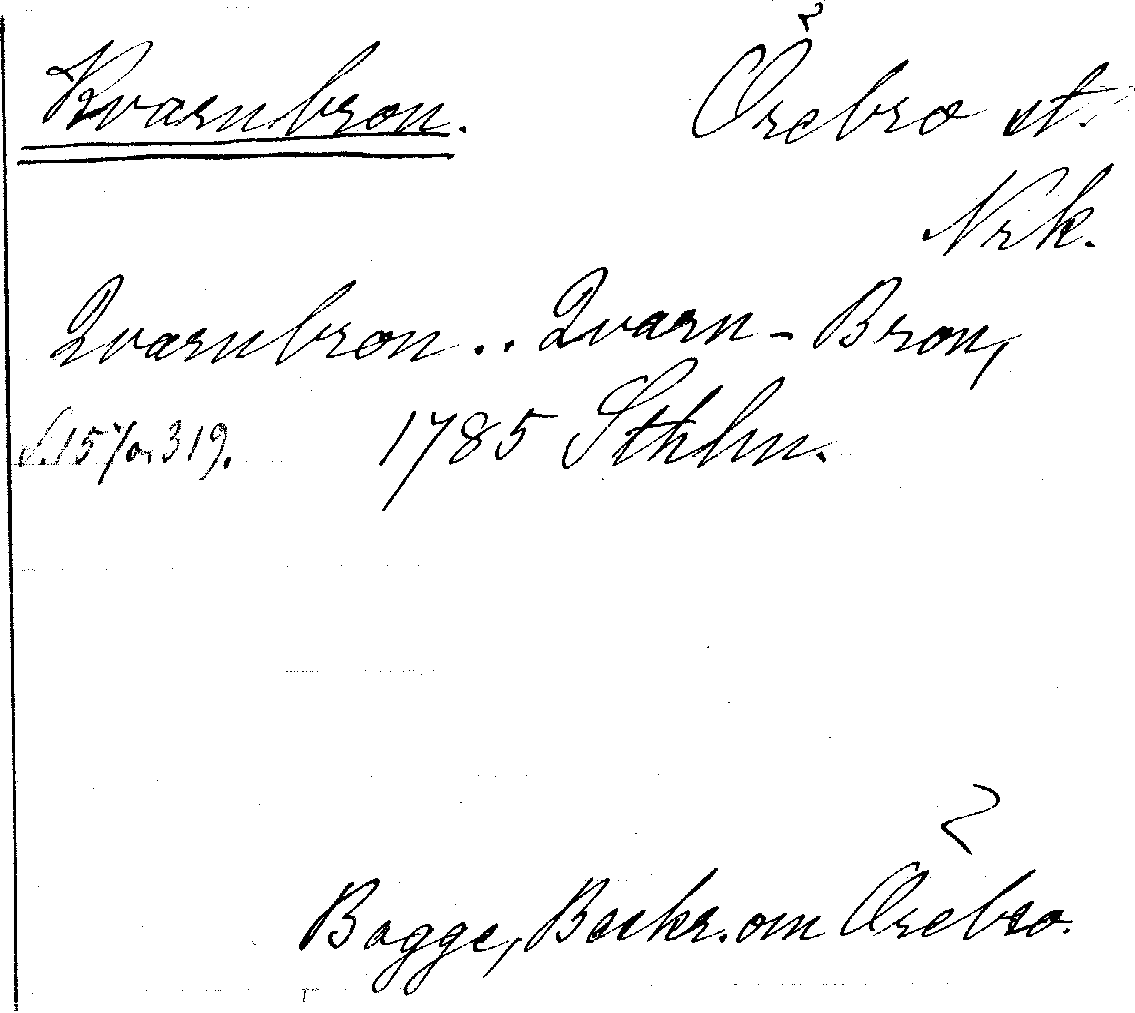 Kvarnbron. Örebro st.
Nrk.
Qvarnbron.. Qvarn-Bron,
s. 157 o. 319. 1785 Sthlm.
Bagge, Beskr. om Örebro.